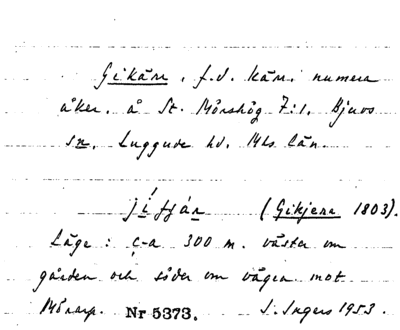 Gikärr, f.d. kärr, numera
åker, å St. Mörshög 7:1, Bjuvs
sn, Luggude hd. Mhs län.
(Gikjerr 1803).
Läge: c-a 300 m. väster om
gården och söder om vägen mot
Mörarp. Nr 5373. I. Ingers 1953.